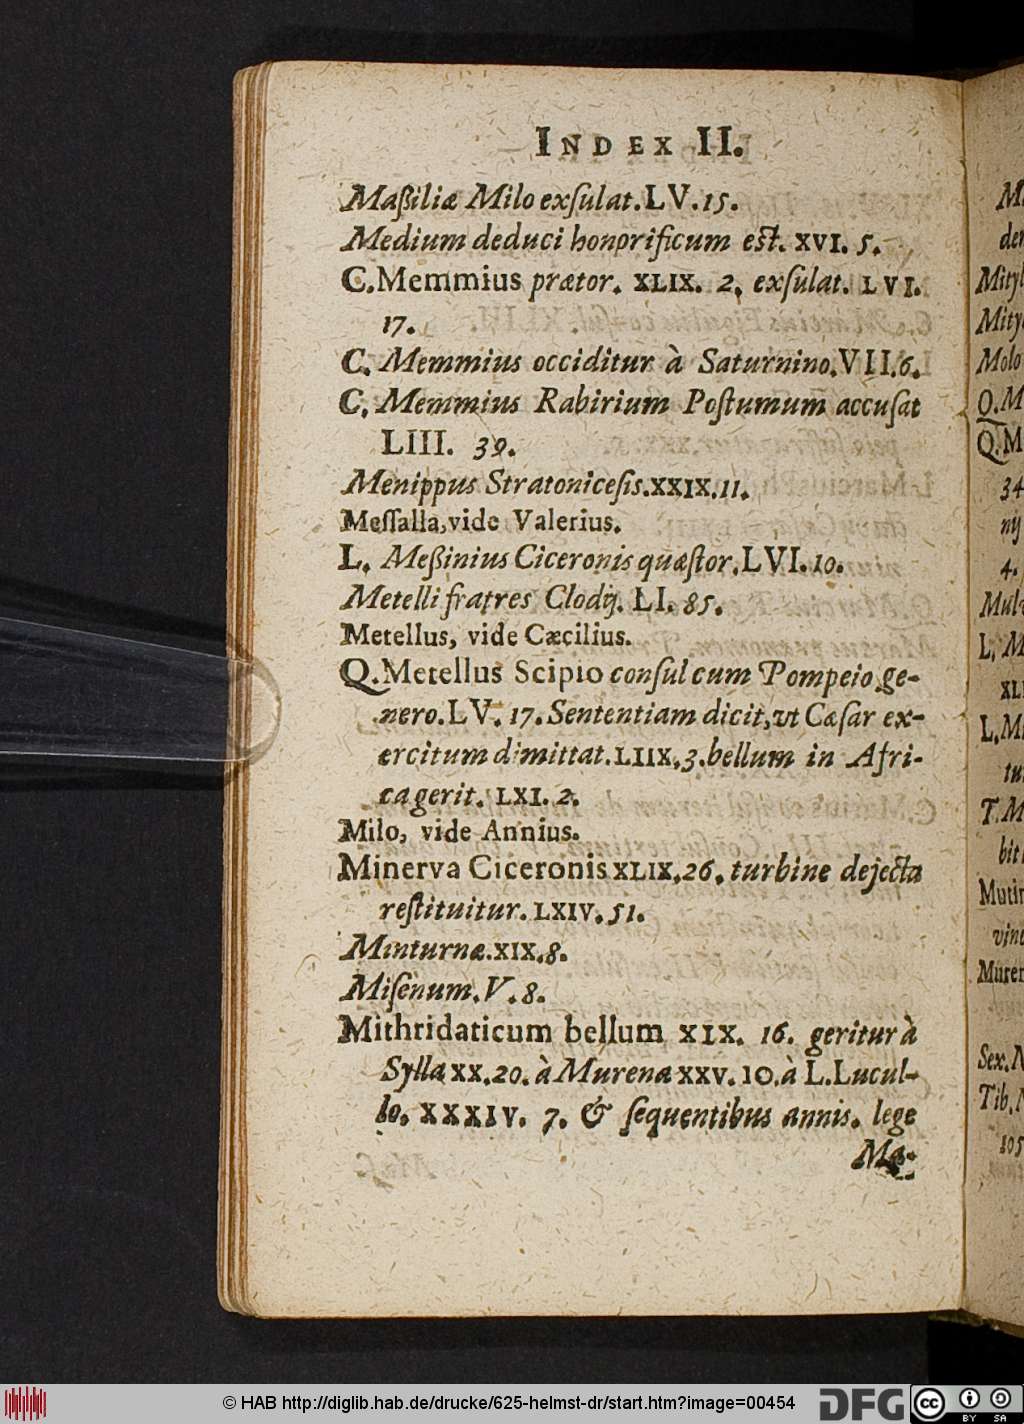 INDEX II.
Maßiliæ Milo exſulat. LV. 15.
Medium deduci honorificum est. XVI. 5.
C. Memmius prætor. XLIX. 2. exſulat. LVI.
17.
C. Memmius occiditur à Saturnino. VII. 6.
C. Memmius Rabirium Poſtumum accuſat
LIII. 39.
Menippus Stratoniceſis. XXIX. 11.
Meſſalla, vide Valerius.
L. Meßinius Ciceronis quæſtor. LVI. 10.
Metelli fratres Clodij. LI. 85.
Metellus, vide Cæcilius.
Q. Metellus Scipio conſul cum Pompeio ge-
nero. LV. 17. Sententiam dicit, ut Cæſar ex-
ercitum dimittat. LIIX. 3. bellum in Afri-
ca gerit. LXI. 2.
Milo, vide Annius.
Minerva Ciceronis XLIX. 26. turbine dejecta
reſtituitur. LXIV. 51.
Minturnæ. XIX. 8.
Miſenum. V. 8.
Mithridaticum bellum XIX. 16. geritur à
Sylla XX. 20. à Murena XXV. 10. à L. Lucul-
lo. XXXIV. 7. & ſequentibus annis. lege
Ma-
Mityl
Mity
Molo
Q. M
Q. M
34
nij
4.
L. M
XLI
L. M
T. M
Mutin
Muren
Sex. M
Tib. M
105
© HAB http://diglib.hab.de/drucke/625-helmst-dr/start.htm?image=00454
DFG
cc
BY SA